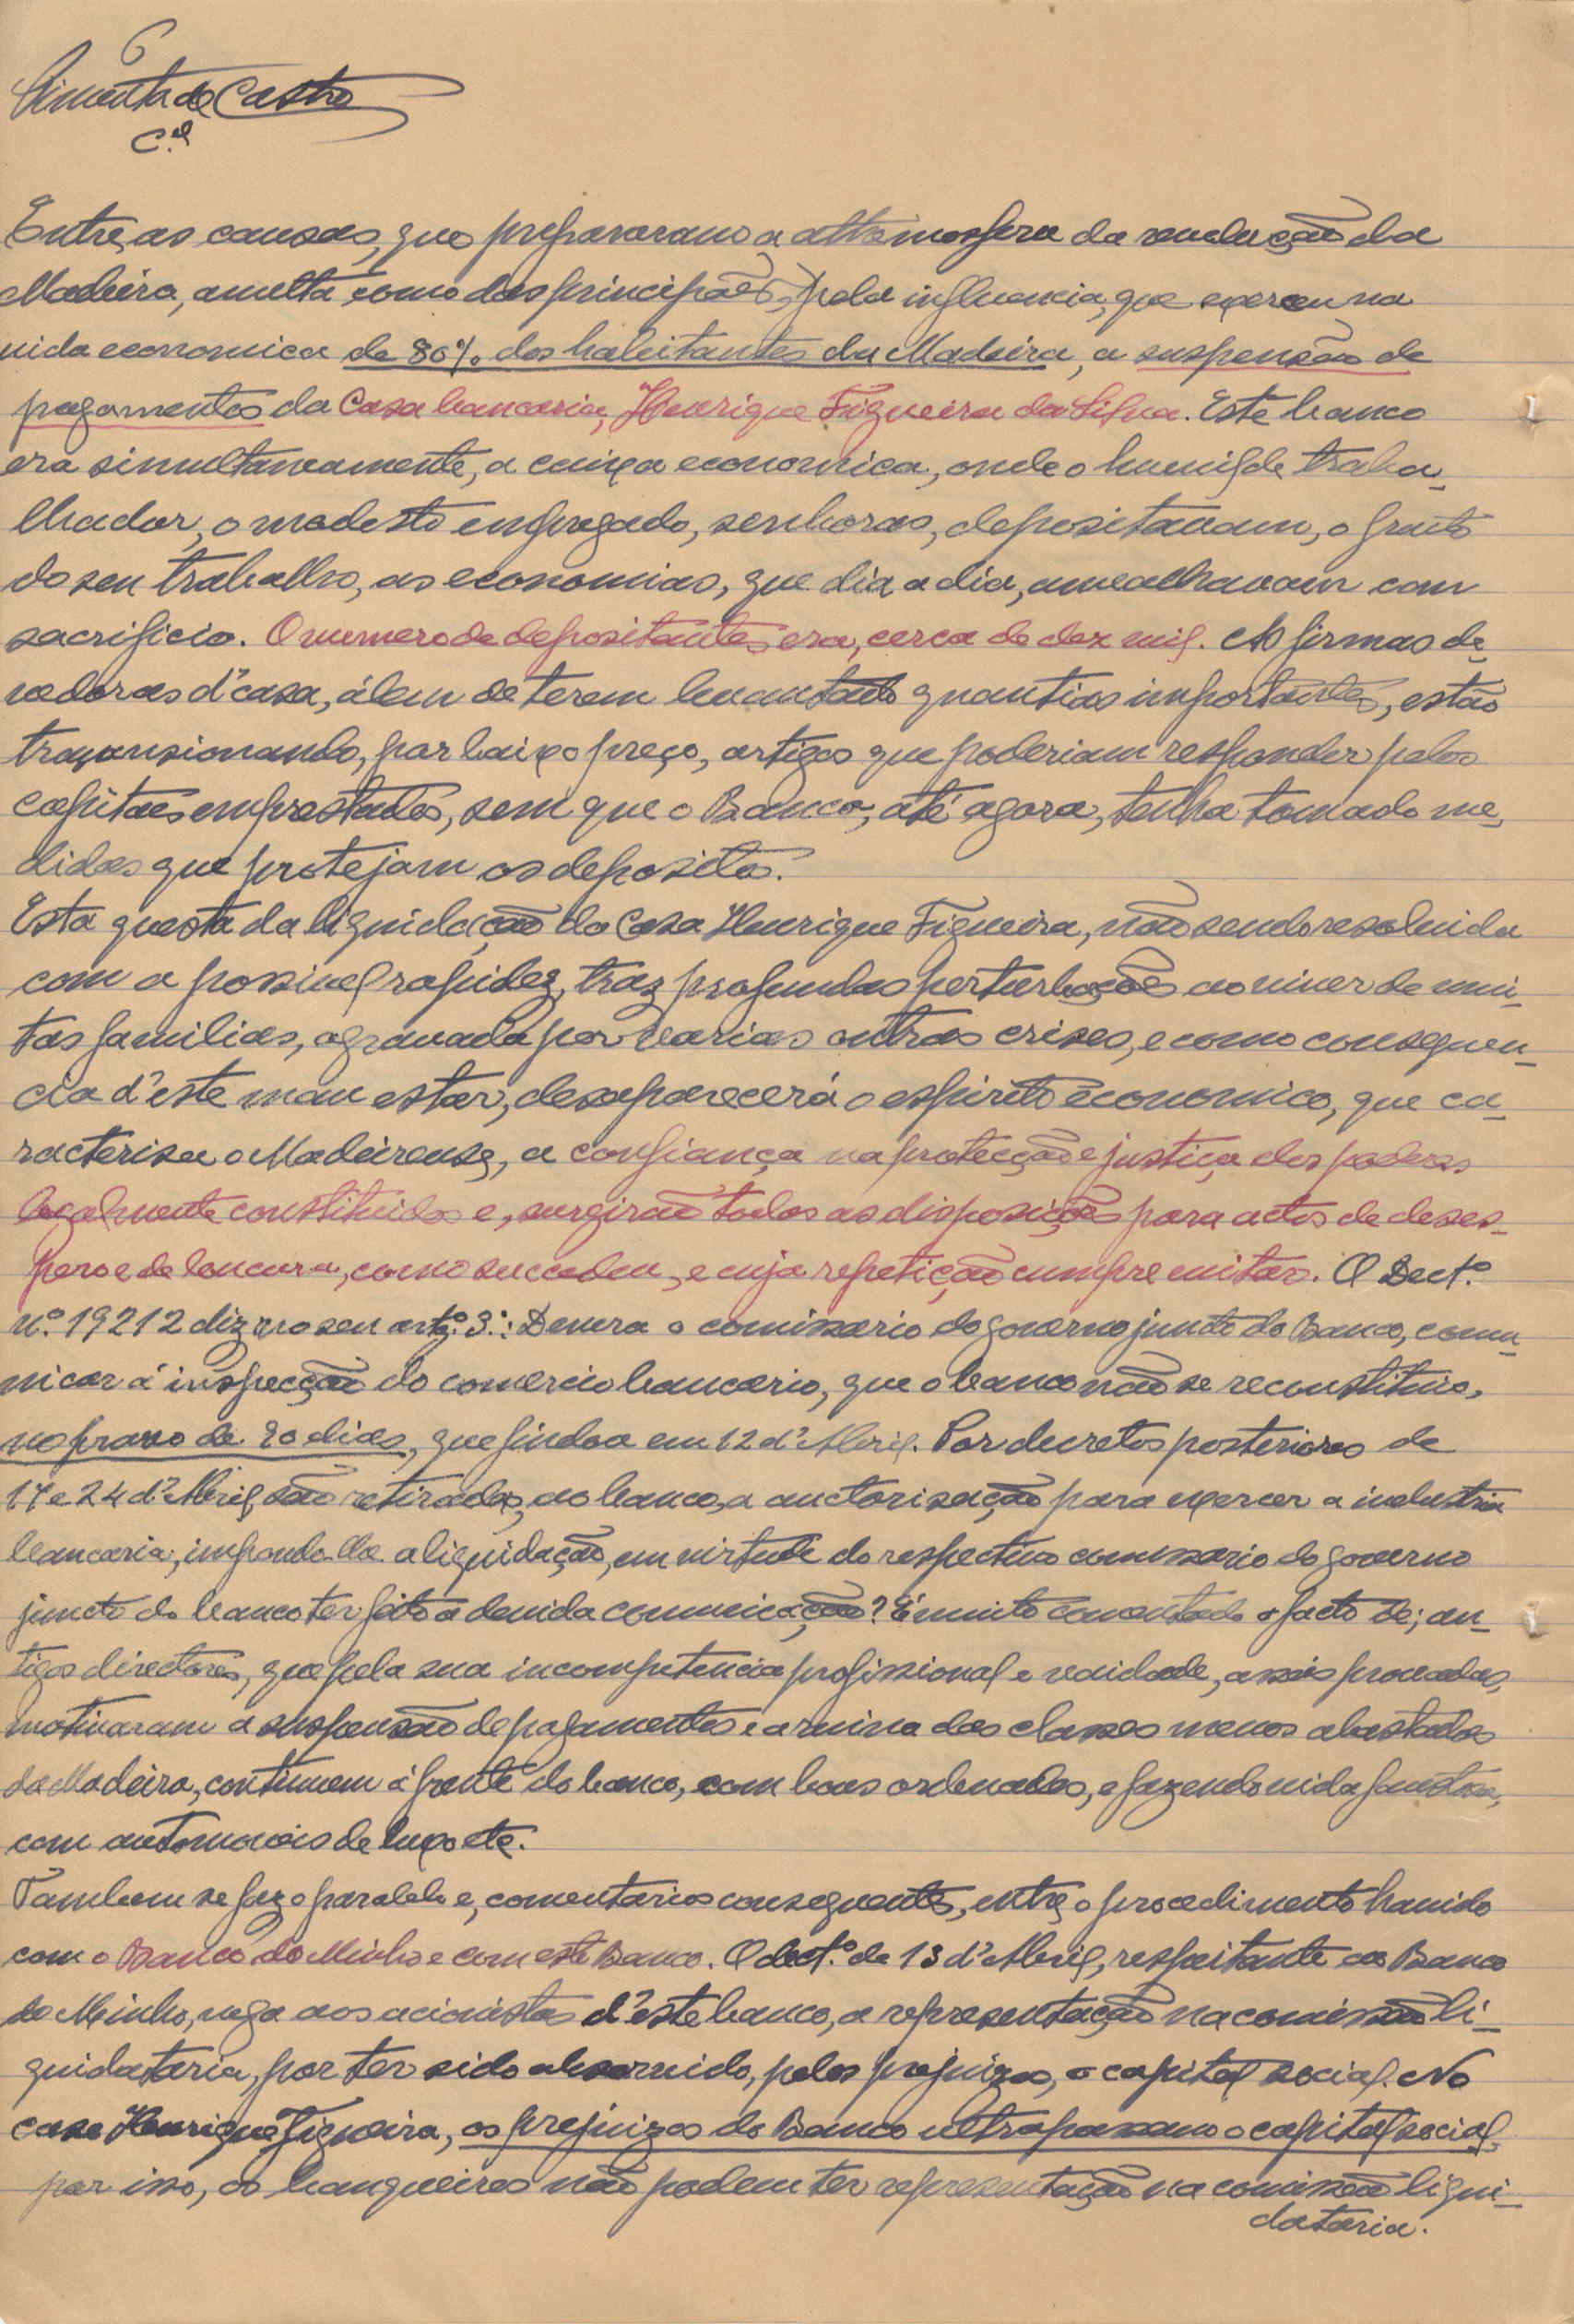 6
Pimenta de Castro
C.el
Entre, as causas, que prepararam a athemosfera da revolução da
Madeira, avulta como das principães, pela influencia, que exerceu na
vida economica de 80% dos habitantes da Madeira, a suspensão de
pagamentos da Casa bancaria, Henrique Figueira da Silva. Este banco
era simultaneamente, a caixa economica, onde o humilde traba-
lhador, o modesto empregado, senhoras, depositavam, o fruto
do seu trabalho, as economias, que dia a dia, amealhavam com
sacrificio. O numero de depositantes era, cerca de dez mil. As firmas de-
vedoras d'casa, álem de terem levantado quantias importantes, estão
transionando, por baixo preço, artigos que poderiam responder pelos
capitaes emprestados, sem que o Banco, até agora, tenha tomado me-
didas que protejam os depositos.
Esta questa da liquidação da Casa Henrique Figueira, não sendo resolvida
com a possivel rapidez, traz profundas perturbações ao viver de mui-
tas familias, agravada por varias outras crises, e como consequen-
cia d'este mau estar, desaparecerá o espirito economico, que ca-
racterisa o Madeirense, a confiança na protecção e justiça dos poderes
legalmente constituidos e, surgirão todas as disposições para actos de deses-
pero e de loucura, como succedeu, e cuja repetição cumpre evitar. O Dect.º
n.º 19212 diz no seu artg.º 3.º: Devera o comissario do governo junto do Banco, comu-
nicar á inspecção do comercio bancario, que o banco não se reconstituio,
no praso de 20 dias, que findou em 12 d'Abril. Por decretos posteriores de
17 e 24 d'Abril são retirados, ao banco, a auctorisação para exercer a industria
bancaria, impondo-lhe a liquidação, em virtude do respectivo comissario do governo
juncto do banco ter feito a devida comunicação? É muito comentado o facto de; an-
tigos directores, que pela sua incompetencia profissional e vaidade, assás provadas,
motivaram a suspensão de pagamentos e a ruina das classes menos abastadas
da Madeira, continuem á frente do banco, com boas ordenados, e fazendo vida faustosa,
com automoveis de luxo etc.
Tambem se faz o paralelo e, comentarios consequentes, entre o procedimento havido
com o Banco do Minho e com este Banco. O dect.º de 13 d'Abril, respeitante ao Banco
do Minho, nega aos acionistas d'este banco, a representação na comissão li-
quidataria, por ter sido absorvido, pelos prejuizos, o capital social. No
caso Henrique Figueira, os prejuizos do Banco ultrapassam o capital social,
por isso, os banqueiros não podem ter representação na comissão liqui-
dataria.